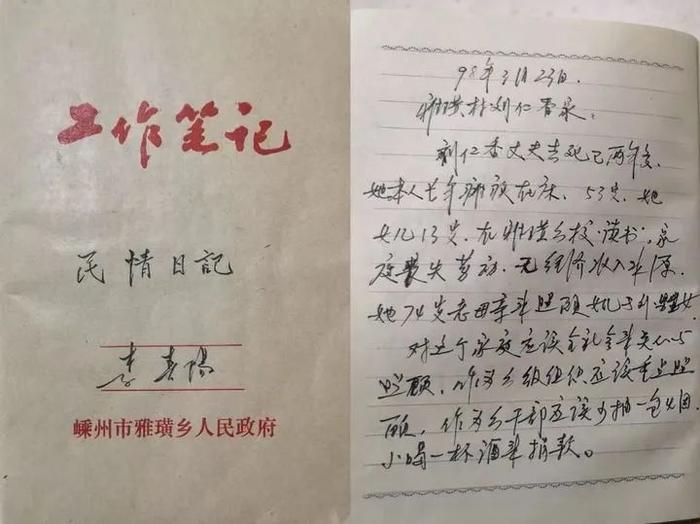 工作笔记
民情日記
李春陽
嵊州市雅璜乡人民政府
98年3月23日.
雅璜村刘仁香家：
刘仁香丈夫去死已两年多,
她本人长年瘫痪在床、53岁、她
女儿13岁、在雅璜乡校读书、家
庭丧失劳动、无经济收入来源、
她74岁老母亲来照顾女儿
对这个家庭应该全社会来关心与
照顾，作为乡级组织应该重点照
顾，作为乡干部应该少抽一包烟
小喝一杯酒来捐款。